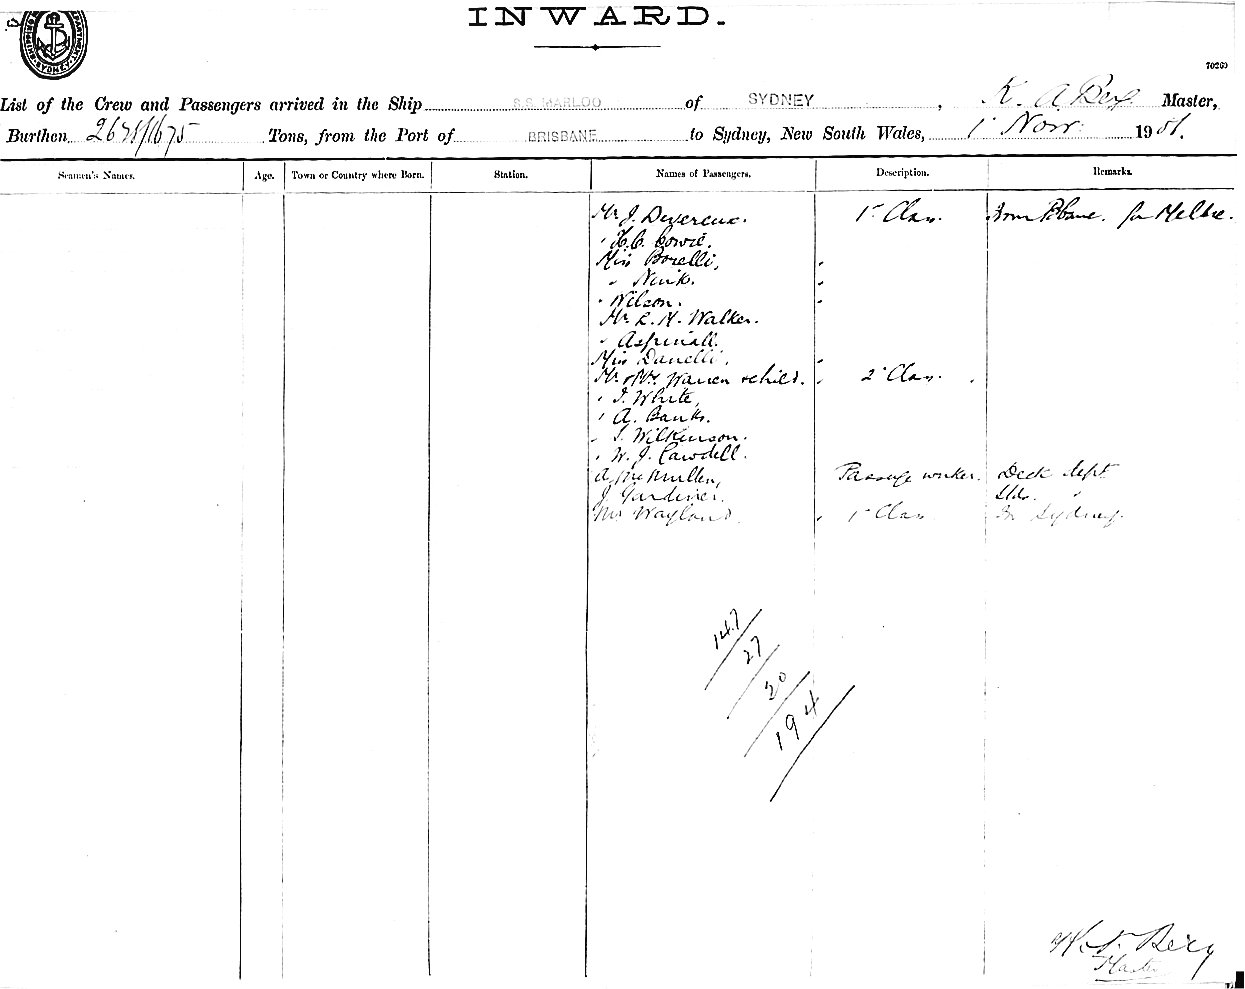 INWARD.
70269
List of the Crew and Passengers arrived in the Ship S.S. MARLOO of SYDNEY, K. A. Berg Master,
Burthen 2628/1675 Tons, from the Port of BRISBANE to Sydney, New South Wales, 1 Nov 1901.
Seamen's Names. Age. Town or Country where Born. Station. Names of Passengers. Description. Remarks.
Mr J. Devereux. 1st Class. from Bbane. for Melbe.
" H.C. Bowie.
Miss Borelli,
" Nink.
" Wilson.
Mr. R. H. Walker.
" Aspinall.
Miss Danelli.
Mr. & Mrs Warren & child. 2d Class.
" J. White,
" A. Banks.
" S. Wilkinson.
" W. J. Cawdell.
A. McMullen, Passage worker. Deck dept
J. Gardiner.
Mrs Wayland. 1st Class for Sydney.
147
27
20
194
Berg
Master